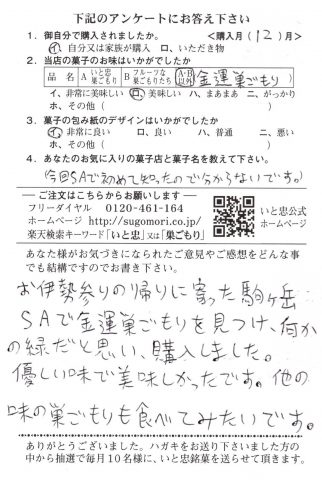 下記のアンケートにお答え下さい
1. 御自分で購入されましたか。 <購入月(12)月>
イ、自分又は家族が購入 ロ、いただき物
2. 当店の菓子のお味はいかがでしたか
品名 A いと忠巣ごもり B フルーツな巣ごもりたち A・B以外(金運巣ごもり)
イ、非常に美味しい ロ、美味しい ハ、まあまあ ニ、がっかり
ホ、その他( )
3. 菓子の包み紙のデザインはいかがでしたか
イ、非常に良い ロ、良い ハ、普通 ニ、悪い
ホ、その他( )
4. あなたのお気に入りの菓子店と菓子名を教えて下さい。
(今回SAで初めて知ったので分からないです。)
―ご注文はこちらからお願いします―
フリーダイヤル 0120-461-164
ホームページ http://sugomori.co.jp/
楽天検索キーワード「いと忠」又は「巣ごもり」
いと忠公式
ホームページ
あなた様がお気づきになられたご意見やご感想をどんな事
でも結構ですのでお書き下さい。
お伊勢参りの帰りに寄った駒ヶ岳
SAで金運巣ごもりを見つけ、何か
の縁だと思い、購入しました。
優しい味で美味しかったです。他の
味の巣ごもりも食べてみたいです。
ありがとうございました。ハガキをお送り下さいました方の
中から抽選で毎月10名様に、いと忠銘菓を送らせて頂きます。